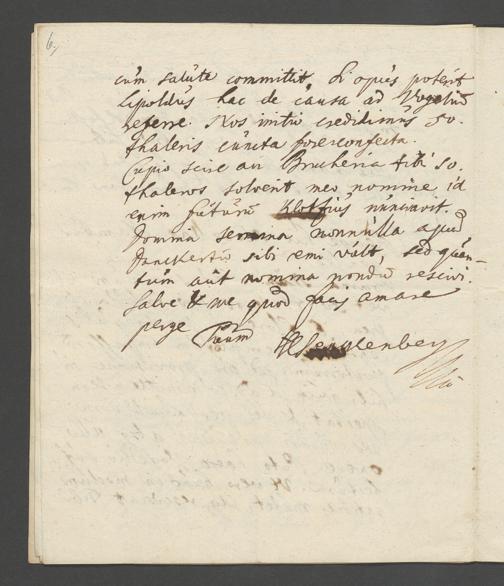 6.
cum salute committit. Si opus poterit
Lipoldus hac de causa ad Vogelium
referre. Nos initio credidimus 50.
thaleris cuncta fore confecta.
Cupio scire an Bruhena tibi 50.
thaleros solverit meo nomine, id
enim futurū nunciavit.
Domina semina nonnulla apud
Danckertū sibi emi vult, sed quan-
tum aut nomina nondū rescivi.
Salve & me quod facis amare
perge Tuum